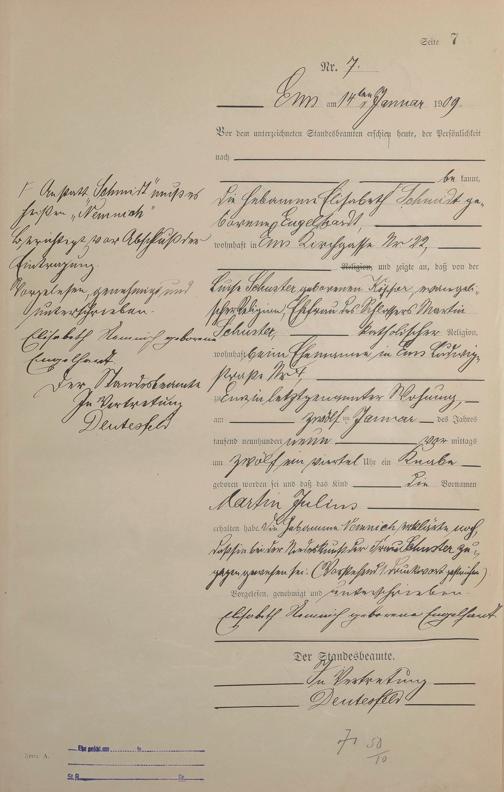 Seite 7
Nr. 7.
Ems am 14ten Januar 1909.
Vor dem unterzeichneten Standesbeamten erschien heute, der Persönlichkeit
nach
be kannt,
die Hebamme Elisabeth Schmidt ge-
borene Engelhardt,
wohnhaft in Ems Kirchgasse Nr 22,
Religion, und zeigte an, daß von der
Luise Schuster geborenen Küffer, evangeli-
scher Religion, Ehefrau des Schlossers Martin
Schuster, katholischer Religion,
wohnhaft beim Ehemanne in Ems Ludwig-
straße Nr
zu Ems in letztgenannter Wohnung,
am zwölften Januar des Jahres
tausend neunhundert neun vor mittags
um zwölf ein viertel Uhr ein Knabe
geboren worden sei und daß das Kind die Vornamen
Martin Julius
erhalten habe. Die Hebamme Nemnich erklärte noch,
daß sie bei der Niederkunft der Frau Schuster zu-
gegen gewesen sei. (Vorstehend 1 Druckwort gestrichen)
Vorgelesen, genehmigt und unterschrieben.
Elisabeth Nemnich geborene Engelhardt
Der Standesbeamte.
In Vertretung
Deutesfeld
Anstatt „Schmidt" muß es
heißen „Nemnich"
Berichtigt vor Abschluß der
Eintragung
Vorgelesen, genehmigt und
unterschrieben.
Elisabeth Nemnich geborene
Engelhardt
Der Standesbeamte
In Vertretung
Deutesfeld
A.